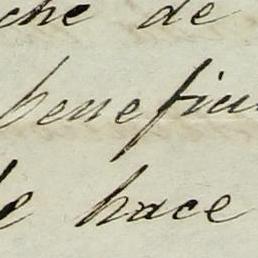 che de
benefici
le hace